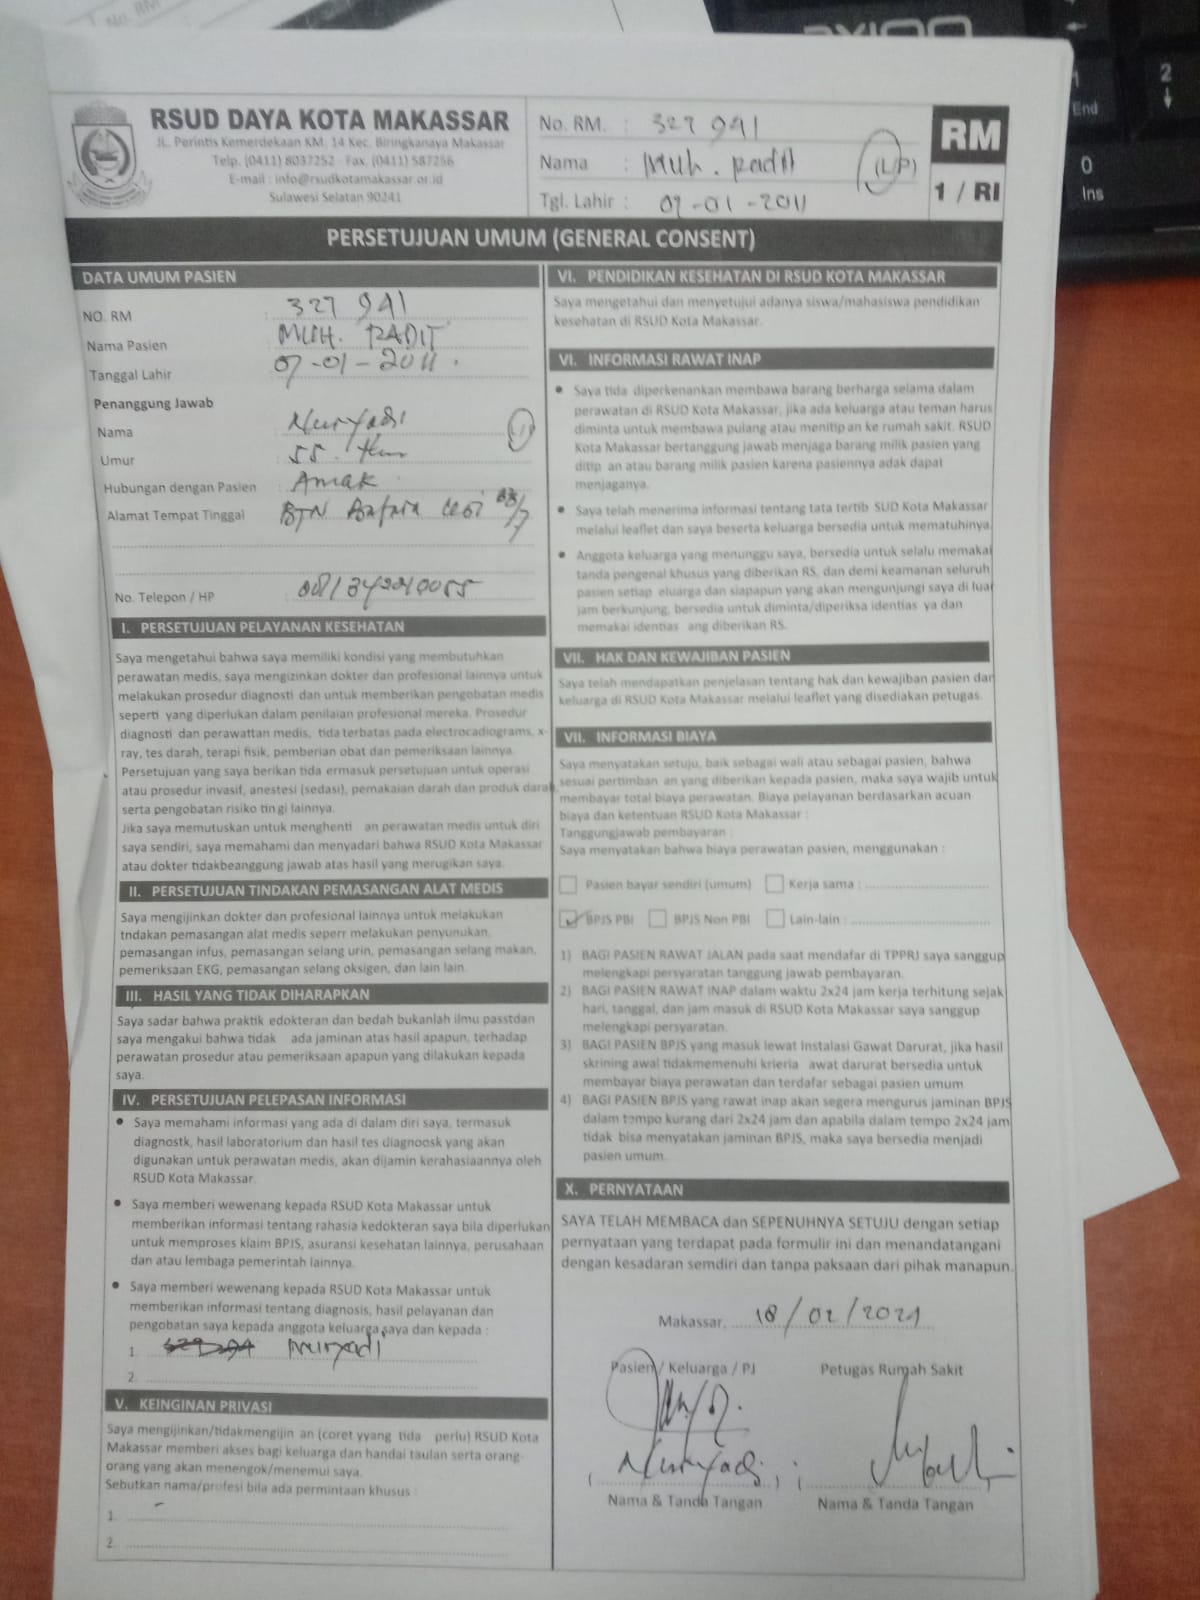 No. RM
RSUD DAYA KOTA MAKASSAR
JL. Perintis Kemerdekaan KM. 14 Kec. Biringkanaya Makassar
Telp. (0411) 8037252 - Fax. (0411) 587256
E-mail : info@rsudkotamakassar.or.id
Sulawesi Selatan 90241
No. RM. : 327 941
Nama : Muh. Radit (L/P)
Tgl. Lahir : 07-01-2011
RM
1 / RI
PERSETUJUAN UMUM (GENERAL CONSENT)
DATA UMUM PASIEN
NO. RM : 327 941
Nama Pasien : MUH. RADIT
Tanggal Lahir : 07-01-2011.
Penanggung Jawab
Nama : Nuryadi
Umur : 55. thn
Hubungan dengan Pasien : Anak
Alamat Tempat Tinggal : BTN
No. Telepon / HP :
I. PERSETUJUAN PELAYANAN KESEHATAN
Saya mengetahui bahwa saya memiliki kondisi yang membutuhkan
perawatan medis, saya mengizinkan dokter dan profesional lainnya untuk
melakukan prosedur diagnosti dan untuk memberikan pengobatan medis
seperti yang diperlukan dalam penilaian profesional mereka. Prosedur
diagnosti dan perawattan medis, tida terbatas pada electrocadiograms, x-
ray, tes darah, terapi fisik, pemberian obat dan pemeriksaan lainnya.
Persetujuan yang saya berikan tida ermasuk persetujuan untuk operasi
atau prosedur invasif, anestesi (sedasi), pemakaian darah dan produk darah,
serta pengobatan risiko tingi lainnya.
Jika saya memutuskan untuk menghenti an perawatan medis untuk diri
saya sendiri, saya memahami dan menyadari bahwa RSUD Kota Makassar
atau dokter tidakbeanggung jawab atas hasil yang merugikan saya.
II. PERSETUJUAN TINDAKAN PEMASANGAN ALAT MEDIS
Saya mengijinkan dokter dan profesional lainnya untuk melakukan
tndakan pemasangan alat medis seperr melakukan penyunukan,
pemasangan infus, pemasangan selang urin, pemasangan selang makan,
pemeriksaan EKG, pemasangan selang oksigen, dan lain lain.
III. HASIL YANG TIDAK DIHARAPKAN
Saya sadar bahwa praktik edokteran dan bedah bukanlah ilmu passtdan
saya mengakui bahwa tidak ada jaminan atas hasil apapun, terhadap
perawatan prosedur atau pemeriksaan apapun yang dilakukan kepada
saya.
IV. PERSETUJUAN PELEPASAN INFORMASI
• Saya memahami informasi yang ada di dalam diri saya, termasuk
diagnostk, hasil laboratorium dan hasil tes diagnoosk yang akan
digunakan untuk perawatan medis, akan dijamin kerahasiaannya oleh
RSUD Kota Makassar.
• Saya memberi wewenang kepada RSUD Kota Makassar untuk
memberikan informasi tentang rahasia kedokteran saya bila diperlukan
untuk memproses klaim BPJS, asuransi kesehatan lainnya, perusahaan
dan atau lembaga pemerintah lainnya.
• Saya memberi wewenang kepada RSUD Kota Makassar untuk
memberikan informasi tentang diagnosis, hasil pelayanan dan
pengobatan saya kepada anggota keluarga saya dan kepada :
1. Nuryadi
2.
V. KEINGINAN PRIVASI
Saya mengijinkan/tidakmengijin an (coret yyang tida perlu) RSUD Kota
Makassar memberi akses bagi keluarga dan handai taulan serta orang-
orang yang akan menengok/menemui saya.
Sebutkan nama/profesi bila ada permintaan khusus :
1.
2.
VI. PENDIDIKAN KESEHATAN DI RSUD KOTA MAKASSAR
Saya mengetahui dan menyetujui adanya siswa/mahasiswa pendidikan
kesehatan di RSUD Kota Makassar.
VI. INFORMASI RAWAT INAP
• Saya tida diperkenankan membawa barang berharga selama dalam
perawatan di RSUD Kota Makassar, jika ada keluarga atau teman harus
diminta untuk membawa pulang atau menitip an ke rumah sakit. RSUD
Kota Makassar bertanggung jawab menjaga barang milik pasien yang
ditip an atau barang milik pasien karena pasiennya adak dapat
menjaganya.
• Saya telah menerima informasi tentang tata tertib SUD Kota Makassar
melalui leaflet dan saya beserta keluarga bersedia untuk mematuhinya.
• Anggota keluarga yang menunggu saya, bersedia untuk selalu memakai
tanda pengenal khusus yang diberikan RS, dan demi keamanan seluruh
pasien setiap eluarga dan siapapun yang akan mengunjungi saya di luar
jam berkunjung, bersedia untuk diminta/diperiksa identias ya dan
memakai identias ang diberikan RS.
VII. HAK DAN KEWAJIBAN PASIEN
Saya telah mendapatkan penjelasan tentang hak dan kewajiban pasien dan
keluarga di RSUD Kota Makassar melalui leaflet yang disediakan petugas.
VII. INFORMASI BIAYA
Saya menyatakan setuju, baik sebagai wali atau sebagai pasien, bahwa
sesuai pertimban an yang diberikan kepada pasien, maka saya wajib untuk
membayar total biaya perawatan. Biaya pelayanan berdasarkan acuan
biaya dan ketentuan RSUD Kota Makassar :
Tanggungjawab pembayaran :
Saya menyatakan bahwa biaya perawatan pasien, menggunakan :
Pasien bayar sendiri (umum) Kerja sama :
BPJS PBI BPJS Non PBI Lain-lain :
1) BAGI PASIEN RAWAT JALAN pada saat mendafar di TPPRJ saya sanggup
melengkapi persyaratan tanggung jawab pembayaran.
2) BAGI PASIEN RAWAT INAP dalam waktu 2x24 jam kerja terhitung sejak
hari, tanggal, dan jam masuk di RSUD Kota Makassar saya sanggup
melengkapi persyaratan.
3) BAGI PASIEN BPJS yang masuk lewat Instalasi Gawat Darurat, jika hasil
skrining awal tidakmemenuhi krieria awat darurat bersedia untuk
membayar biaya perawatan dan terdafar sebagai pasien umum
4) BAGI PASIEN BPJS yang rawat inap akan segera mengurus jaminan BPJS
dalam tempo kurang dari 2x24 jam dan apabila dalam tempo 2x24 jam
tidak bisa menyatakan jaminan BPJS, maka saya bersedia menjadi
pasien umum.
X. PERNYATAAN
SAYA TELAH MEMBACA dan SEPENUHNYA SETUJU dengan setiap
pernyataan yang terdapat pada formulir ini dan menandatangani
dengan kesadaran semdiri dan tanpa paksaan dari pihak manapun.
Makassar, 18/02/2021
Pasien / Keluarga / PJ Petugas Rumah Sakit
Nuryadi
Nama & Tanda Tangan Nama & Tanda Tangan
1
End
2
0
Ins